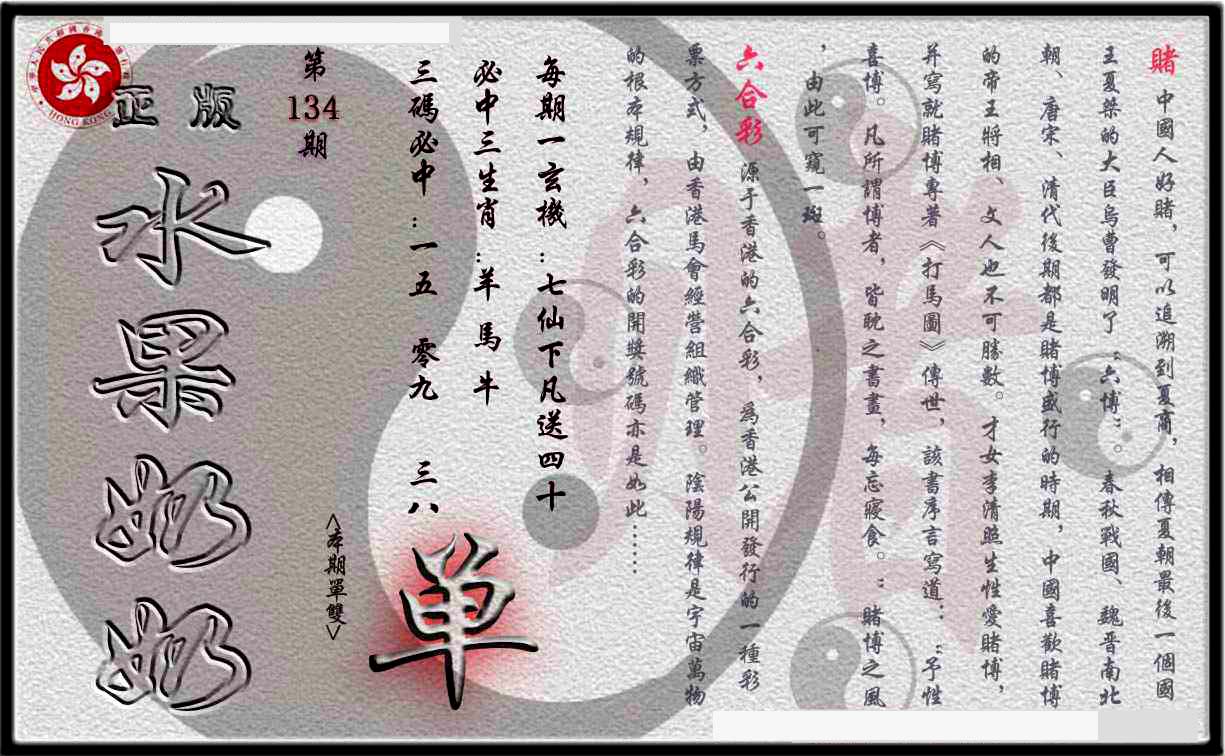 賭 中國人好賭，可以追溯到夏商，相傳夏朝最後一個國
王夏桀的大臣烏曹發明了“六博”。春秋戰國、魏晋南北
朝、唐宋、清代後期都是賭博盛行的時期，中國喜歡賭博
的帝王將相、文人也不可勝數。才女李清照生性愛賭博，
并寫就賭博專著《打馬圖》傳世，該書序言寫道：“予性
喜博。凡所謂博者，皆耽之書畫，每忘寢食。”賭博之風
，由此可窺一斑。
六合彩 源于香港的六合彩，為香港公開發行的一種彩
票方式，由香港馬會經營組織管理。陰陽規律是宇宙萬物
的根本規律，六合彩的開獎號碼亦是如此……
每期一玄機：七仙下凡送四十
必中三生肖：羊 馬 牛
三碼必中：一五 零九 三八
单
<本期單雙>
第134期
正版
水果奶奶
HONG KONG